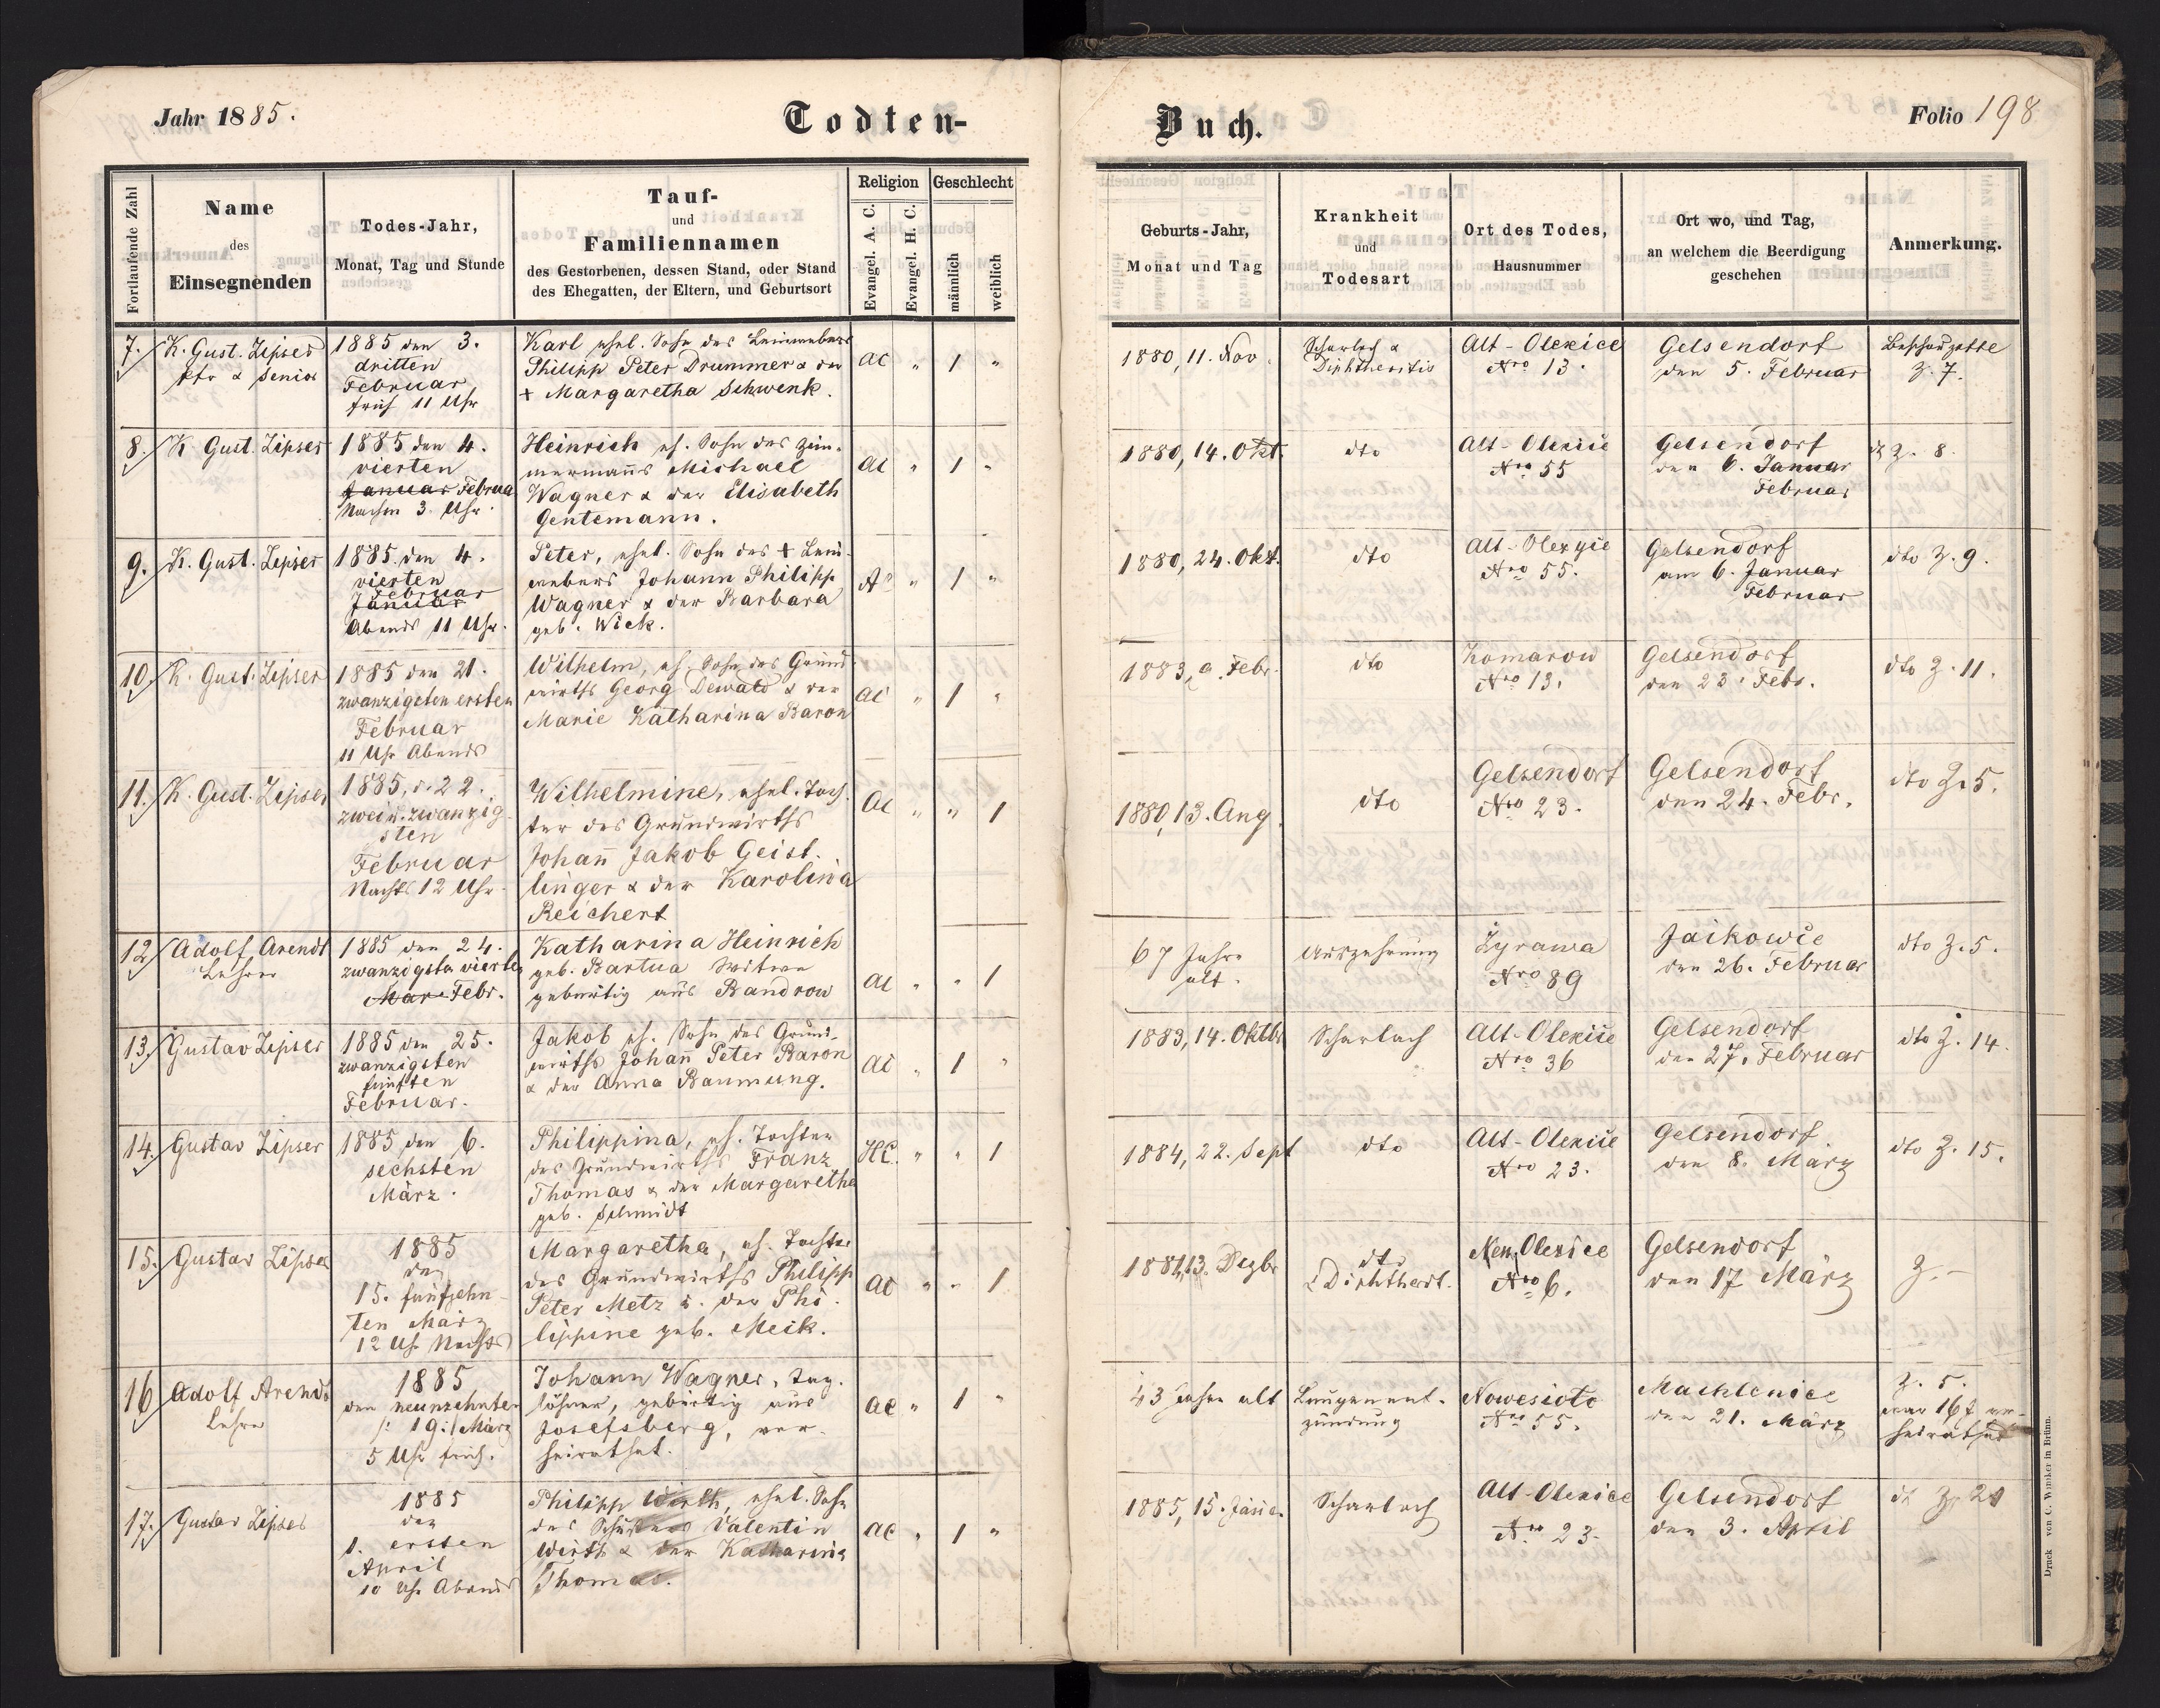 Jahr 1885.
Todten-
Buch.
Folio 198
Fortlaufende Zahl
Name
des
Einsegnenden
Todes-Jahr,
Monat, Tag und Stunde
Tauf-
und
Familiennamen
des Gestorbenen, dessen Stand, oder Stand
des Ehegatten, der Eltern, und Geburtsort
Religion
Evangel. A. C.
Evangel. H. C.
Geschlecht
männlich
weiblich
Geburts-Jahr,
Monat und Tag
Krankheit
und
Todesart
Ort des Todes,
Hausnummer
Ort wo, und Tag,
an welchem die Beerdigung
geschehen
Anmerkung.
7.
K. Gust. Zipser
Pfr & Senior
1885 den 3.
dritten
Februar
früh 11 Uhr
Karl ehel. Sohn des Leinwebers
Philipp Peter Drummer & der
+ Margaretha Schwenk.
AC " 1 "
1880, 11. Nov.
Scharlach &
Diphtheritis
Alt-Olexice
Nro 13.
Gelsendorf
den 5. Februar
Beschauzettel
Z. 7.
8.
K Gust. Zipser
1885 den 4.
vierten
Januar Februar
Nachm 3. Uhr.
Heinrich eh. Sohn des Zim-
mermanns Michael
Wagner & der Elisabeth
Gentemann.
AC " 1 "
1880, 14. Okt.
dto
Alt-Olexice
Nro 55
Gelsendorf
den 6. Januar
Februar
dt Z. 8.
9.
K. Gust. Zipser
1885 den 4.
vierten
Februar
Januar
Abends 11 Uhr.
Peter, ehel. Sohn des + Lein-
webers Johann Philipp
Wagner & der Barbara
geb. Wick.
AC " 1 "
1880, 24. Okt.
dto
Alt-Olexyce
Nro 55.
Gelsendorf
am 6. Januar
Februar
dto Z. 9.
10.
K. Gust. Zipser
1885 den 21.
zwanzigsten ersten
Februar
11 Uhr Abends
Wilhelm, eh. Sohn des Grund-
wirths Georg Dewald & der
Marie Katharina Baron
AC " 1 "
1883, 9. Febr.
dto
Komarow
Nro 13.
Gelsendorf
den 23. Febr.
dto Z. 11.
11.
K. Gust. Zipser
1885, d. 22.
zwei u. zwanzig-
sten
Februar
Nachts 12 Uhr.
Wilhelmine, ehel. Toch-
ter des Grundwirths
Johann Jakob Geist-
linger & der Karolina
Reichert
AC " " 1
1880, 13. Aug.
dto
Gelsendorf
Nro 23.
Gelsendorf
den 24. Febr.
dto Z. 5.
12
Adolf Arendt
Lehrer
1885 den 24.
zwanzigsten vierten
Mar Febr.
Katharina Heinrich
geb. Bartua Witwe
gebürtig aus Bandrow
AC " " 1
67 Jahre
alt.
Auszehrung
Zyrawa
Nro 89
Jaikowce
den 26. Februar
dto Z. 5.
13.
Gustav Zipser
1885 den 25.
zwanzigsten
fünften
Februar.
Jakob eh. Sohn des Grund-
wirths Johann Peter Baron
& der Anna Baumung.
AC " 1 "
1883, 14. Oktbr
Scharlach
Alt-Olexice
Nro 36
Gelsendorf
den 27. Februar
dto Z. 14.
14.
Gustav Zipser
1885 den 6.
sechsten
März.
Philippina, eh. Tochter
des Grundwirths Franz
Thomas & der Margarethe
geb. Schmidt
HC. " " 1
1884, 22. Sept
dto
Alt-Olexice
Nro 23.
Gelsendorf
den 8. März
dto Z. 15.
15.
Gustav Zipser
1885
den
15. fünfzehn-
ten März
12 Uh Nachts
Margaretha, eh. Tochter
des Grundwirths Philipp
Peter Metz u. der Phi-
lippine geb. Meik.
AC " " 1
1881, 13. Dezbr
dto
& Diphthert.
Neu Olexice
Nro 6.
Gelsendorf
den 17 März
Z. —
16
Adolf Arendt
Lehrer
1885
den neunzehnten
/: 19 :/ März
5 Uhr früh.
Johann Wagner, Tag-
löhner, gebürtig aus
Josefsberg, ver-
heirathet.
AC " 1 "
43 Jahre alt
Lungenent-
zündung
Nowesioto
Nro 55.
Machlenice
den 21. März
Z. 5.
war 16 J ver-
heirathet
17.
Gustav Zipser
1885
den
1. ersten
April
10 Uhr Abends
Philipp Wirth, ehel. Sohn
des Schusters Valentin
Wirth & der Katharina
Thomas.
AC " 1 "
1885, 15. Jänner.
Scharlach
Alt-Olexice
Nro 23.
Gelsendorf
den 3. April
dt Z. 21
Druck von C. Winiker in Brünn.